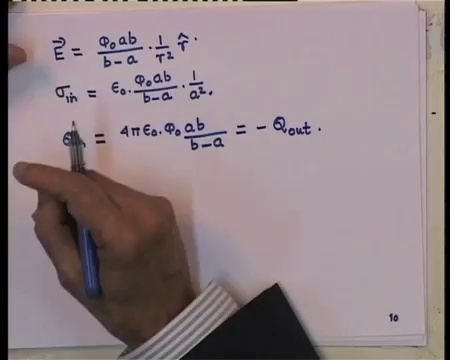 E⃗ = φ₀ab/(b-a) · 1/r² r̂.
σin = ε₀. φ₀ab/(b-a) · 1/a².
= 4πε₀. φ₀ ab/(b-a) = - Qout.
10